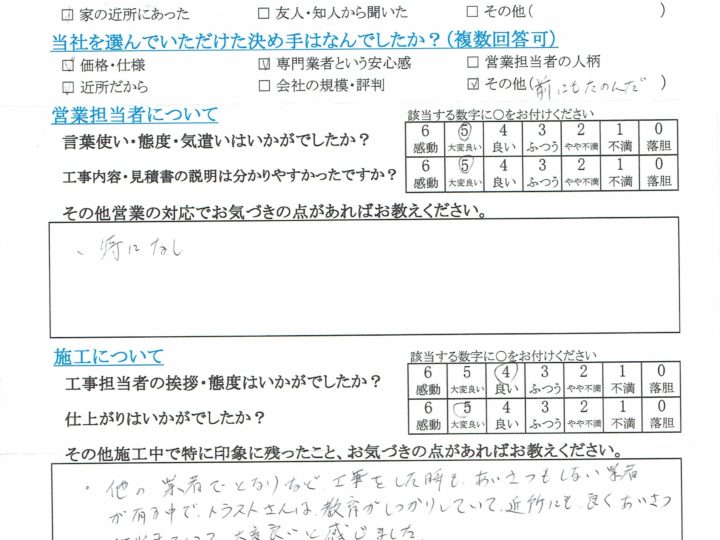 ☑ 家の近所にあった □ 友人・知人から聞いた □ その他( )
当社を選んでいただけた決め手はなんでしたか？(複数回答可)
☑ 価格・仕様 ☑ 専門業者という安心感 □ 営業担当者の人柄
☑ 近所だから □ 会社の規模・評判 ☑ その他(前にもたのんだ)
営業担当者について 該当する数字に○をお付けください
言葉使い・態度・気遣いはいかがでしたか？ 6 5 4 3 2 1 0
感動 大変良い 良い ふつう やや不満 不満 落胆
工事内容・見積書の説明は分かりやすかったですか？ 6 5 4 3 2 1 0
感動 大変良い 良い ふつう やや不満 不満 落胆
その他営業の対応でお気づきの点があればお教えください。
、特になし
施工について 該当する数字に○をお付けください
工事担当者の挨拶・態度はいかがでしたか？ 6 5 4 3 2 1 0
感動 大変良い 良い ふつう やや不満 不満 落胆
仕上がりはいかがでしたか？ 6 5 4 3 2 1 0
感動 大変良い 良い ふつう やや不満 不満 落胆
その他施工中で特に印象に残ったこと、お気づきの点があればお教えください。
・他の業者でとなりなど、工事をした時も、あいさつもしない業者
が有る中で、トラストさんは、教育がしっかりしていて、近所にも、良くあいさつ
大変良いと感じました。